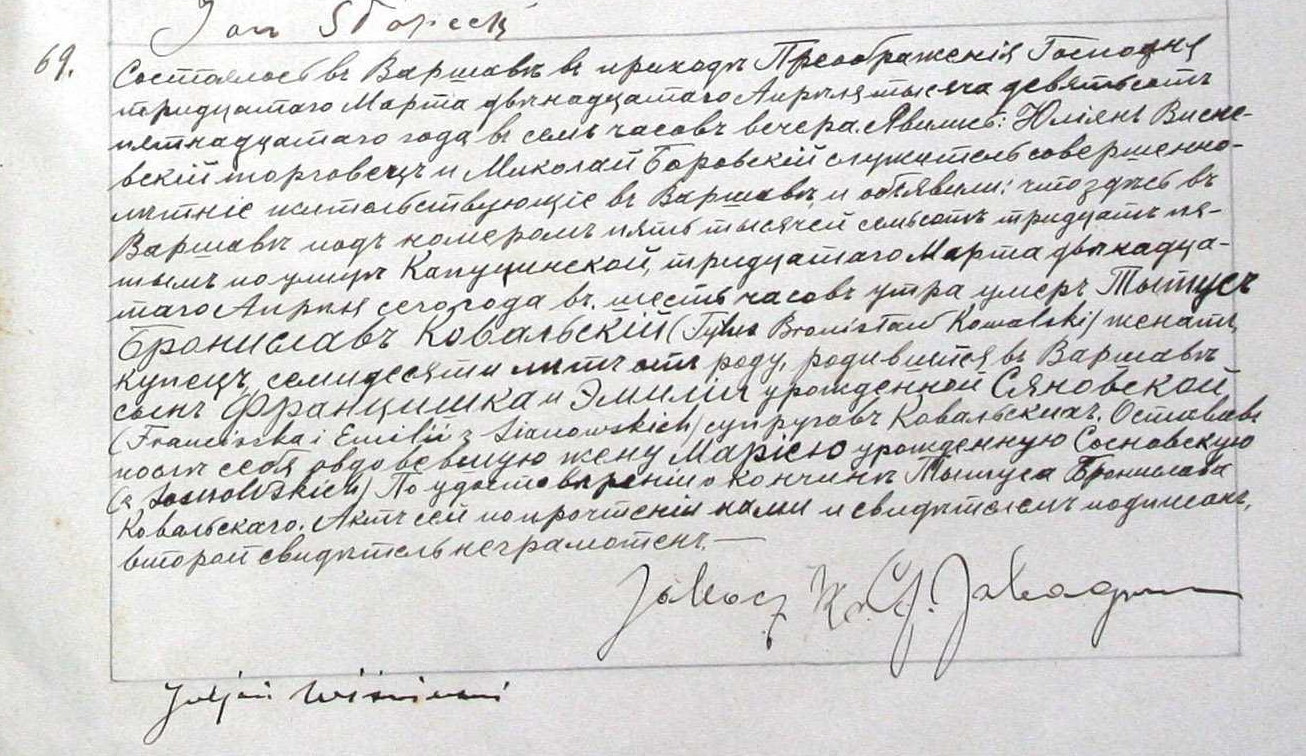 Jan Słopecki
69.
Состоялось въ Варшавѣ въ приходѣ Преображенія Господня
тридцатаго Марта двѣнадцатаго Апрѣля тысяча девятьсотъ
пятнадцатаго года въ семь часовъ вечера. Явились: Юліянъ Висне-
вскій торговецъ и Миколай Боровскій служитель совершенно-
лѣтніе жительствующіе въ Варшавѣ и объявили: что здѣсь въ
Варшавѣ подъ номеромъ пять тысячей семьсотъ тридцать пя-
тымъ по улицѣ Капуцинской, тридцатаго Марта двѣнадца-
таго Апрѣля сего года въ шесть часовъ утра умеръ Тытусъ
Брониславъ Ковальскій (Tytus Bronisław Kowalski) женатъ,
купецъ, семидесяти лѣтъ отъ роду, родившійся въ Варшавѣ
сынъ Францишка и Эмиліи урожденной Сяновской
(Franciszka i Emilii z Sianowskich) супруговъ Ковальскихъ. Оставивъ
послѣ себя овдовевшую жену Марію урожденную Сосновскую
(z Sosnowskich) По удостовѣренію о кончинѣ Тытуса Бронислава
Ковальскаго. Актъ сей по прочтеніи нами и свидѣтелемъ подписанъ,
второй свидѣтель неграмотенъ.—
Juljan Wiśniewski